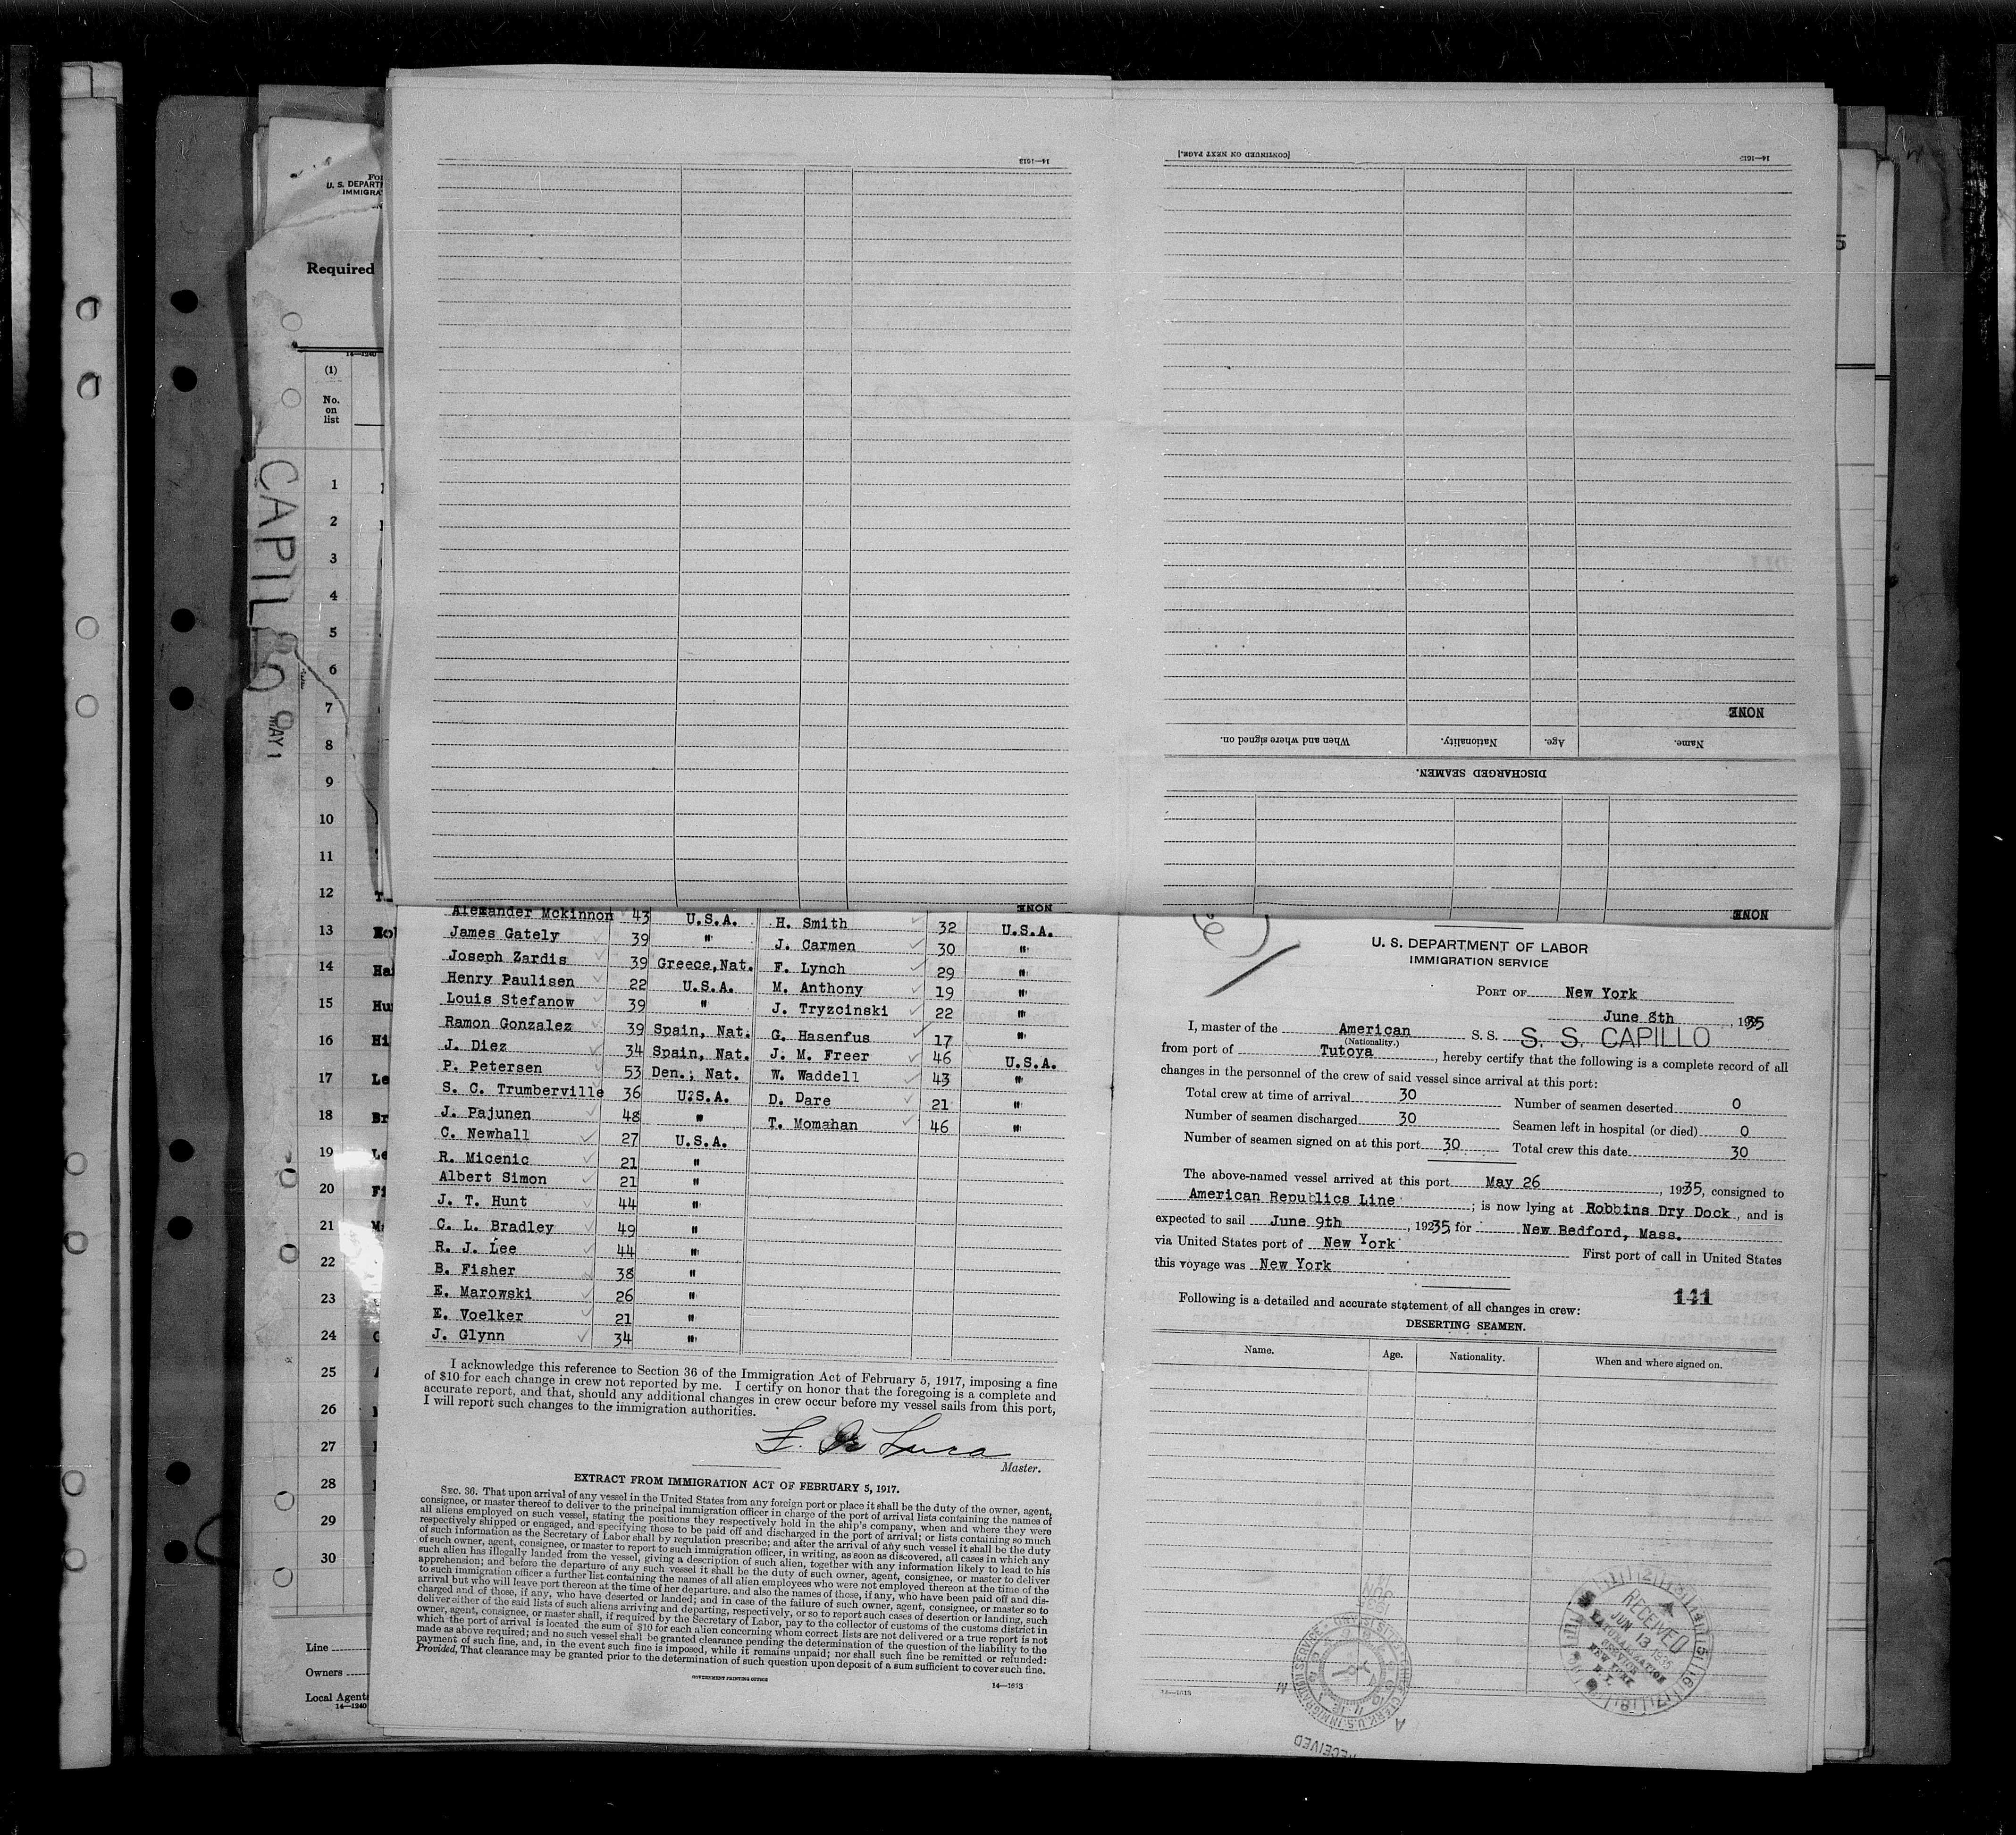 14—1613
[CONTINUED ON NEXT PAGE.]
14—1613
U. S. DEPARTM
IMMIGRA
Required
14—1240
(1)
No.
on
list
CAPILLO
MAY 1
1
2
3
4
5
6
7
8
9
10
11
12
13
14
15
16
17
18
19
20
21
22
23
24
25
26
27
28
29
30
Line
Owners
Local Agent
14—1240
NONE
When and where signed on. Nationality. Age. Name.
DISCHARGED SEAMEN.
NONE
NONE
Alexander Mckinnon 43 U.S.A. H. Smith 32 U.S.A.
James Gately 39 " J. Carmen 30 "
Joseph Zardis 39 Greece,Nat. F. Lynch 29 "
Henry Paulisen 22 U.S.A. M. Anthony 19 "
Louis Stefanow 39 " J. Tryzcinski 22 "
Ramon Gonzalez 39 Spain, Nat. G. Hasenfus 17 "
J. Diez 34 Spain, Nat. J. M. Freer 46 U.S.A.
P. Petersen 53 Den., Nat. W. Waddell 43 "
S. C. Trumberville 36 U.S.A. D. Dare 21 "
J. Pajunen 48 " T. Momahan 46 "
C. Newhall 27 U.S.A.
R. Micenic 21 "
Albert Simon 21 "
J. T. Hunt 44 "
C. L. Bradley 49 "
R. J. Lee 44 "
B. Fisher 38 "
E. Marowski 26 "
E. Voelker 21 "
J. Glynn 34 "
I acknowledge this reference to Section 36 of the Immigration Act of February 5, 1917, imposing a fine
of $10 for each change in crew not reported by me. I certify on honor that the foregoing is a complete and
accurate report, and that, should any additional changes in crew occur before my vessel sails from this port,
I will report such changes to the immigration authorities.
F. De Luca
Master.
EXTRACT FROM IMMIGRATION ACT OF FEBRUARY 5, 1917.
SEC. 36. That upon arrival of any vessel in the United States from any foreign port or place it shall be the duty of the owner, agent,
consignee, or master thereof to deliver to the principal immigration officer in charge of the port of arrival lists containing the names of
all aliens employed on such vessel, stating the positions they respectively hold in the ship's company, when and where they were
respectively shipped or engaged, and specifying those to be paid off and discharged in the port of arrival; or lists containing so much
of such information as the Secretary of Labor shall by regulation prescribe; and after the arrival of any such vessel it shall be the duty
of such owner, agent, consignee, or master to report to such immigration officer, in writing, as soon as discovered, all cases in which any
such alien has illegally landed from the vessel, giving a description of such alien, together with any information likely to lead to his
apprehension; and before the departure of any such vessel it shall be the duty of such owner, agent, consignee, or master to deliver
to such immigration officer a further list containing the names of all alien employees who were not employed thereon at the time of the
arrival but who will leave port thereon at the time of her departure, and also the names of those, if any, who have been paid off and dis-
charged and of those, if any, who have deserted or landed; and in case of the failure of such owner, agent, consignee, or master so to
deliver either of the said lists of such aliens arriving and departing, respectively, or so to report such cases of desertion or landing, such
owner, agent, consignee, or master shall, if required by the Secretary of Labor, pay to the collector of customs of the customs district in
which the port of arrival is located the sum of $10 for each alien concerning whom correct lists are not delivered or a true report is not
made as above required; and no such vessel shall be granted clearance pending the determination of the question of the liability to the
payment of such fine, and, in the event such fine is imposed, while it remains unpaid; nor shall such fine be remitted or refunded:
Provided, That clearance may be granted prior to the determination of such question upon deposit of a sum sufficient to cover such fine.
GOVERNMENT PRINTING OFFICE
14—1613
U. S. DEPARTMENT OF LABOR
IMMIGRATION SERVICE
PORT OF New York
June 8th, 1935
I, master of the American S. S. S. S. CAPILLO
(Nationality.)
from port of Tutoya, hereby certify that the following is a complete record of all
changes in the personnel of the crew of said vessel since arrival at this port:
Total crew at time of arrival 30 Number of seamen deserted 0
Number of seamen discharged 30 Seamen left in hospital (or died) 0
Number of seamen signed on at this port 30 Total crew this date 30
The above-named vessel arrived at this port May 26, 1935, consigned to
American Republics Line; is now lying at Robbins Dry Dock, and is
expected to sail June 9th, 19235 for New Bedford, Mass.
via United States port of New York First port of call in United States
this voyage was New York
141
Following is a detailed and accurate statement of all changes in crew:
DESERTING SEAMEN.
Name. Age. Nationality. When and where signed on.
14—1613
RECEIVED
JUN 13 1935
NATURALIZATION
SERVICE
NEW YORK
N. Y.
CHIEF CLERK U.S. IMMIGRATION SERVICE
RECEIVED